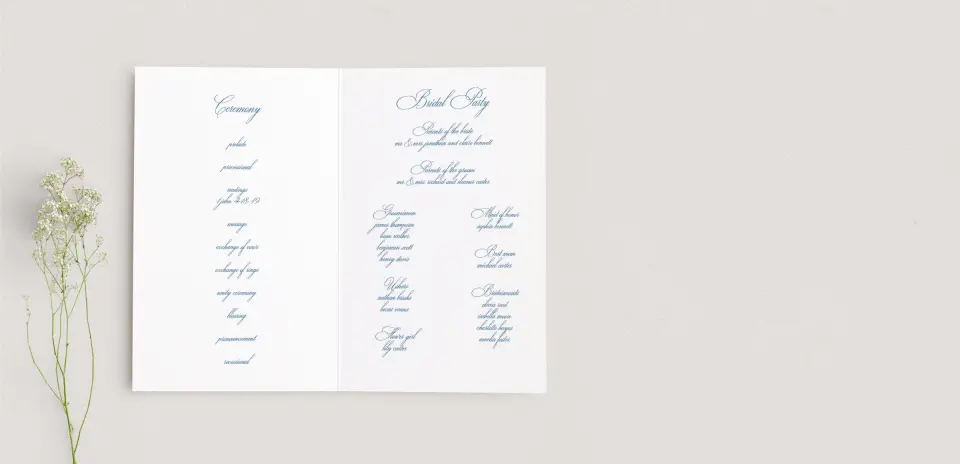 Ceremony
prelude
processional
readings
1 john 4:18-19
message
exchange of vows
exchange of rings
unity ceremony
blessing
pronouncement
recessional
Bridal Party
Parents of the bride
mr. & mrs. jonathan and claire bennett
Parents of the groom
mr. & mrs. richard and eleanor carter
Groomsmen
james thompson
liam walker
benjamin scott
henry davis
Ushers
nathan brooks
lucas evans
Flower girl
lily carter
Maid of honor
sophia bennett
Best man
michael carter
Bridesmaids
olivia reed
isabella moore
charlotte hayes
amelia foster